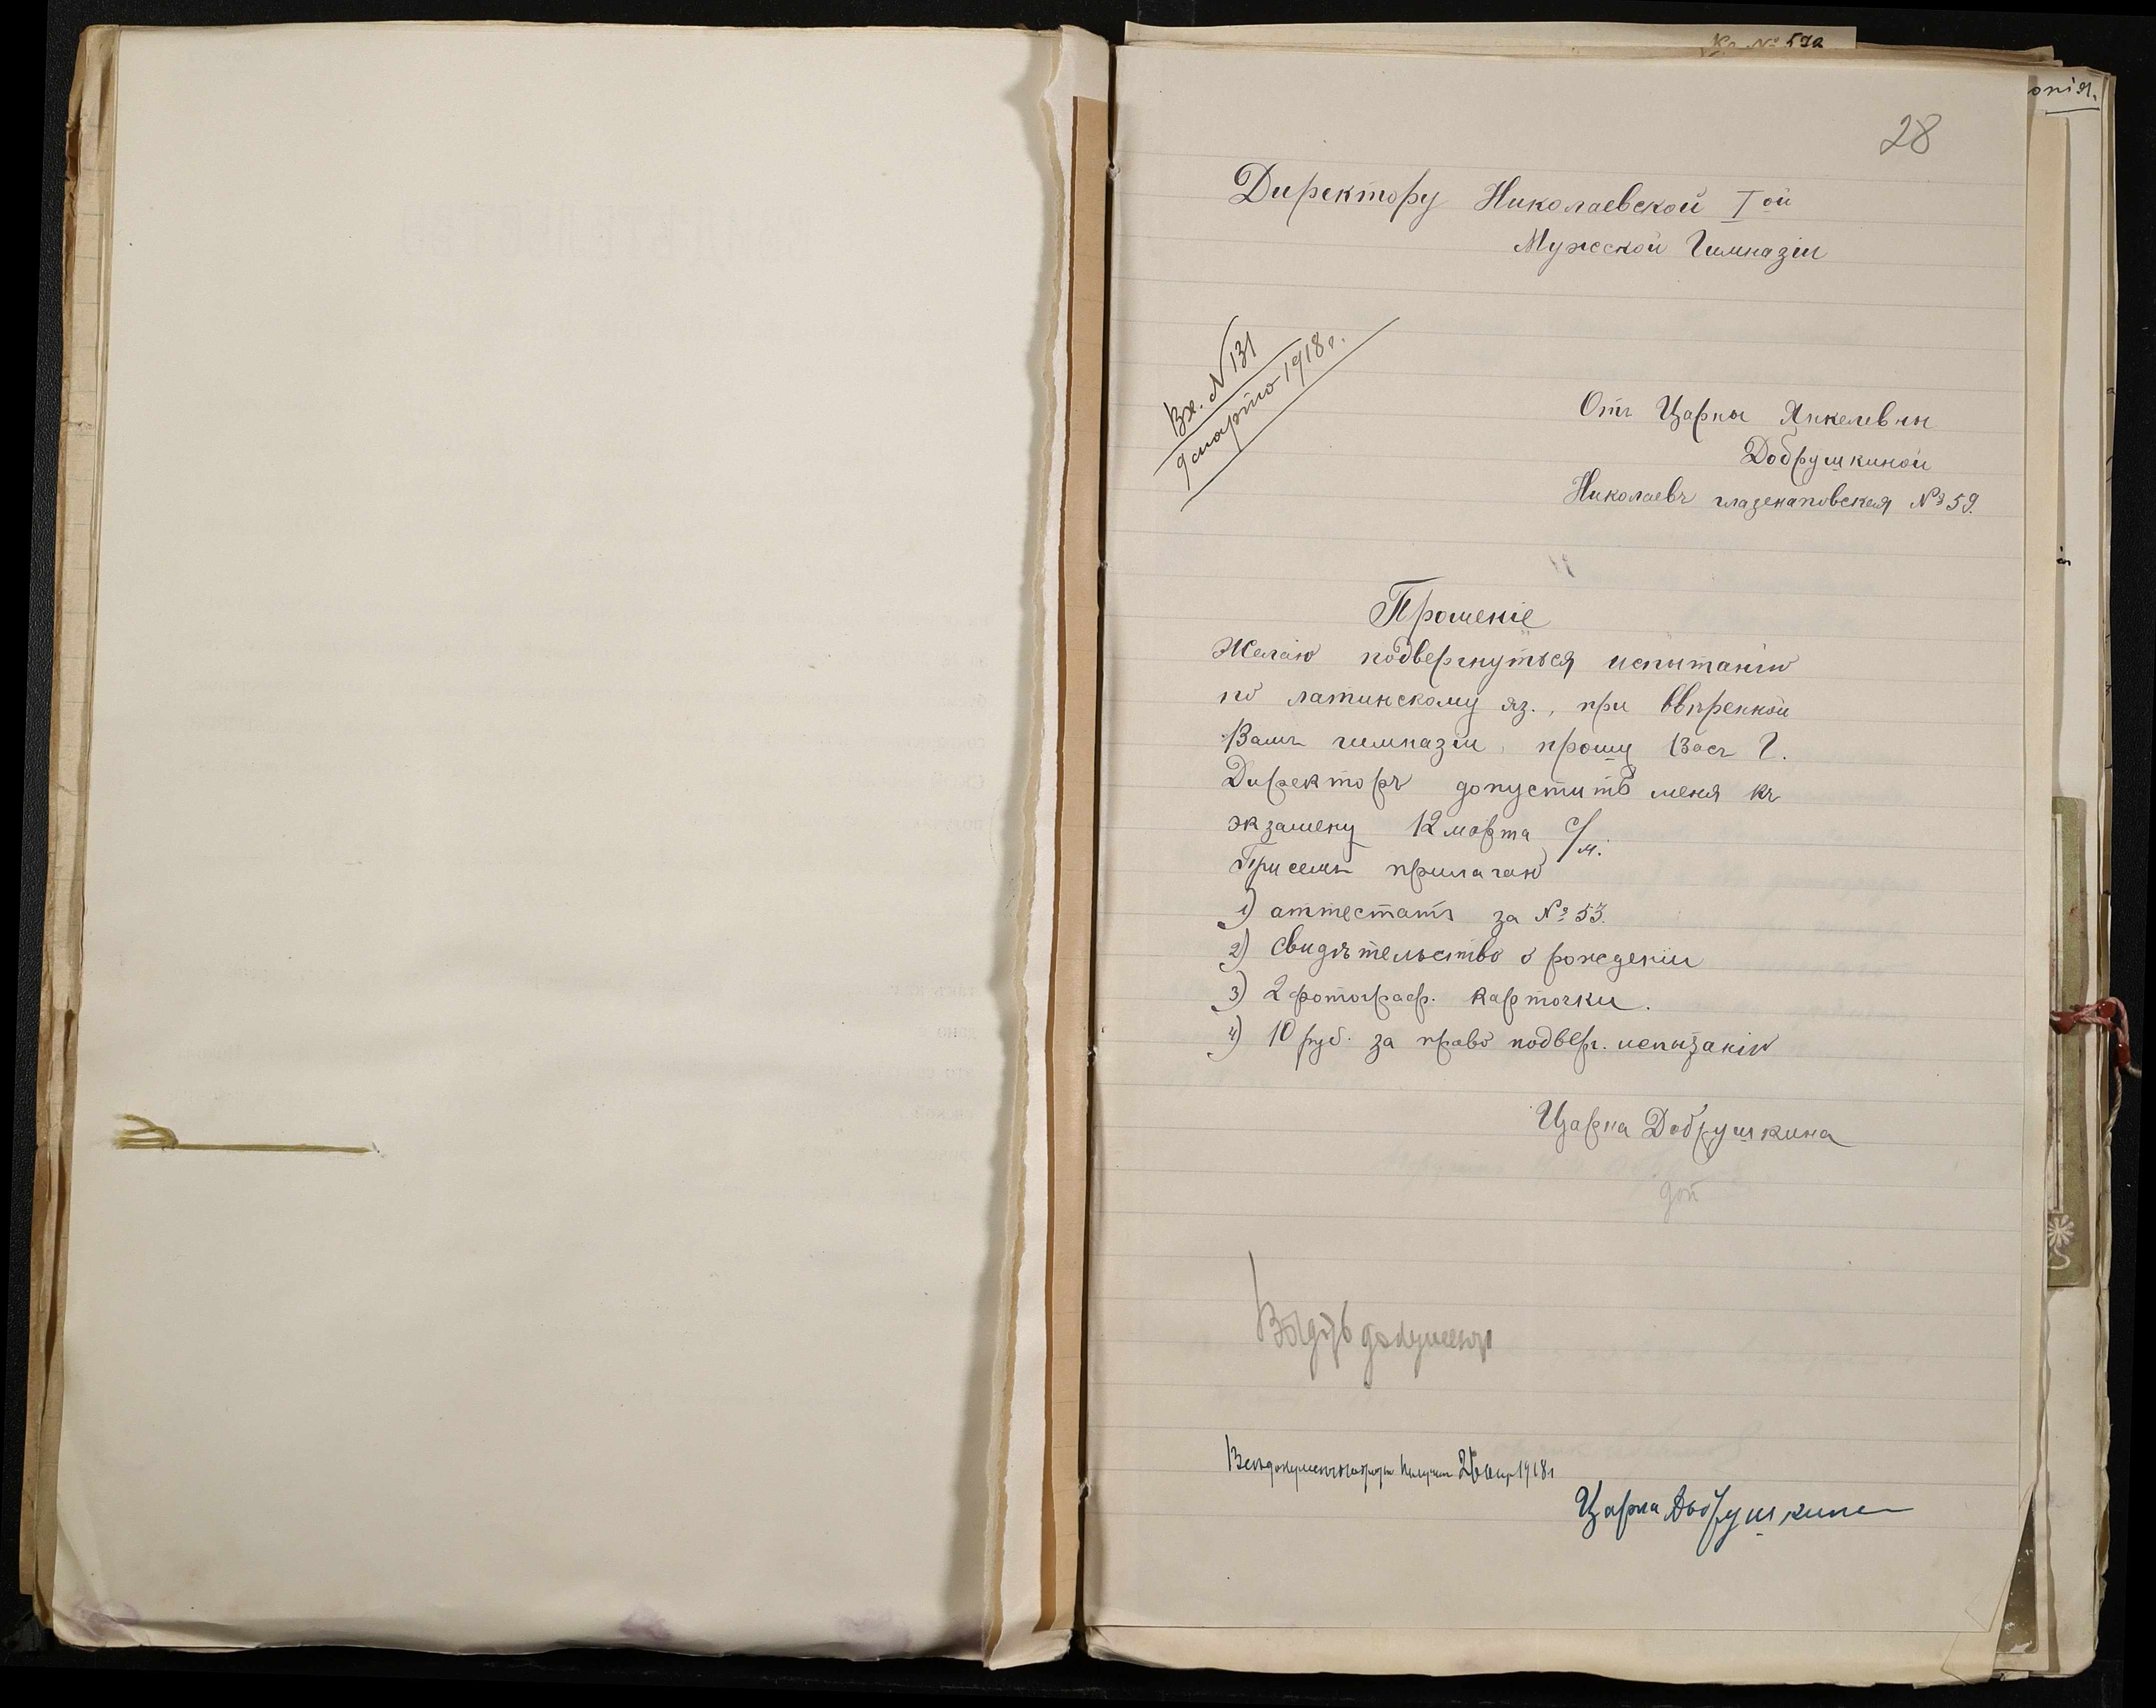 28
Директору Николаевской I ой
Мужеской Гимназіи
Вх. N 131
9 марта 1918 г.
Отъ Царны Янкелевны
Добрушкиной
Николаевъ глазенаповская № 59.
Прошеніе
Желаю подвергнуться испытанію
по латинскому яз., при ввѣренной
Вамъ гимназіи, прошу Васъ Г.
Директоръ допустить меня къ
экзамену 12 марта с/м.
При семъ прилагаю
1) аттестатъ за № 53.
2) свидѣтельство о рожденіи
3) 2 фотограф. карточки.
4) 10 руб. за право подверг. испытанію
Царна Добрушкина
доп
Выдать документы
1918 г
Царна Добрушкина